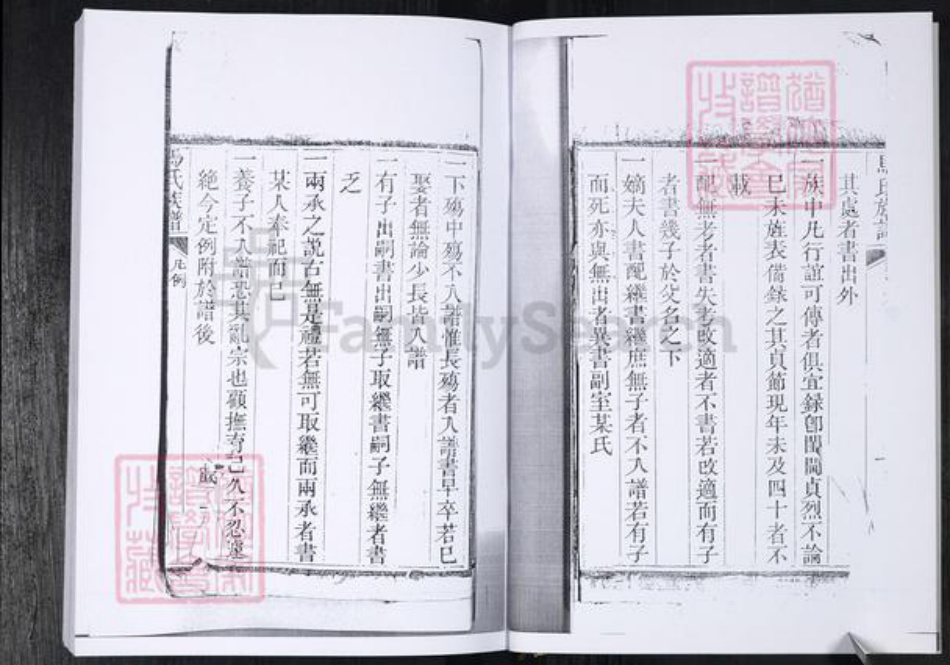 其處者書出外
一族中凡行誼可傳者俱宜録卽閨閫貞烈不論
已未旌表俻録之其貞節現年未及四十者不
載
配無考者書失考改適者不書若改適而有子
者書幾子於父名之下
一嫡夫人書配繼書繼庶無子者不入譜若有子
而死亦與無出者異書副室某氏
一下殤中殤不入譜惟長殤者入譜書早卒若已
娶者無論少長皆入譜
一有子出嗣書出嗣無子取繼書嗣子無繼者書
乏
一兩承之說古無是禮若無可取繼而兩承者書
某人奉祀而已
一養子不入譜恐其亂宗也顧撫育已久不忍遽
絶今定例附於譜後
馬氏族譜
凡例
FamilySearch